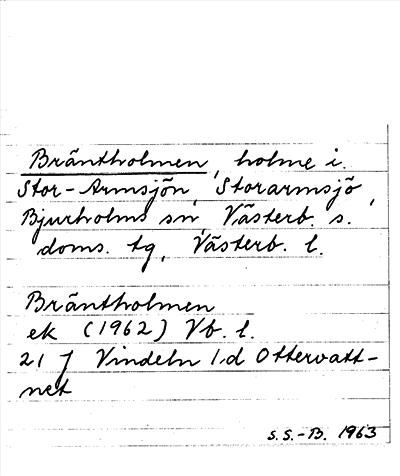 Bräntholmen, holme i
Stor-Armsjön, Storarmsjö,
Bjurholms sn, Västerb. s.
doms. tg, Västerb. l.
Bräntholmen
ek (1962) Vb. l.
21 J Vindeln 1d Ottervatt-
net
S.S.-B. 1963